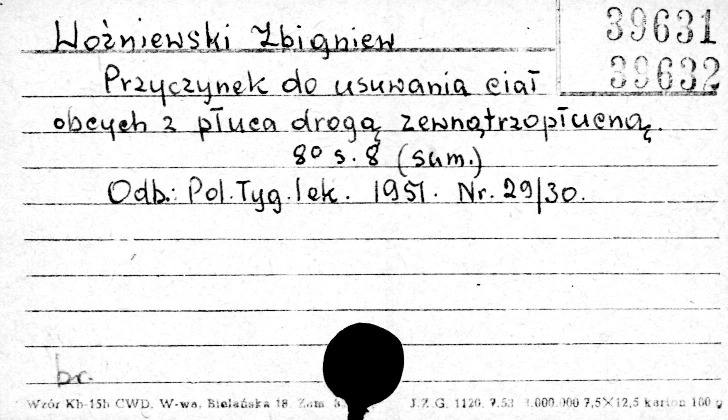 Woźniewski Zbigniew
39631
39632
Przyczynek do usuwania ciał
obcych z płuca drogą zewnątrzopłucną.
8° s. 8 (sum.)
Odb.: Pol. Tyg. lek. 1951. Nr. 29/30.
br.
Wzór Kb-15b CWD. W-wa, Bielańska 18. Zam J.Z.G. 1120. 7.53 1.000.000 7,5×12,5 karton 160 g